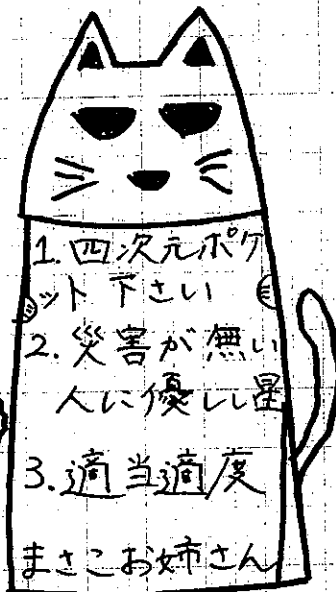 1. 四次元ポケ
ット下さい
2. 災害が無い
人に優しい星
3. 適当適度
まさこお姉さん